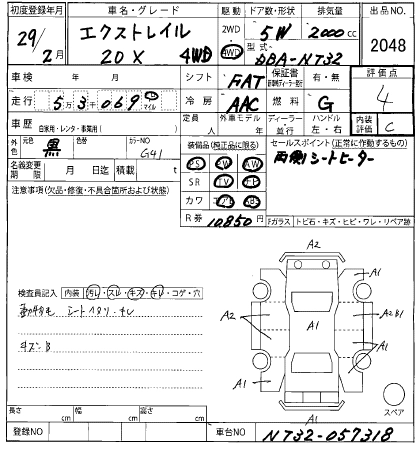 初度登録年月 車名・グレード 駆動 ドア数・形状 排気量 出品NO
29/2月 エクストレイル 20X 4WD 2WD 4WD 5W 2000cc 2048
型式 DBA-NT32
車検 年 月 シフト FAT 保証書 有・無 評価点
走行 53,069 km マイル 冷房 AAC 燃料 G 4
車歴 自家用・レンタ・事業用( ) 定員 人 外車モデル 年式 ディーラー・並行 ハンドル 左・右 内装評価 C
外色 元色 黒 色替 カラーNO G41 装備品(純正品に限る) セールスポイント(正常に作動するもの)
PS PW AW 両側シートヒーター
名義変更期限 月 日迄 積載 t SR TV ナビ
注意事項(欠品・修復・不具合箇所および状態) カワ エアB ABS
R券 10,850円 Fガラス トビ石・キズ・ヒビ・ワレ・リペア跡
A2
A1
A1
検査員記入 内装 汚レ・スレ・キズ・キレ・コゲ・穴
A2 A1 A2B1
シート
キズ
A1 A1
A1
スペア
長さ cm 幅 cm 高さ cm
登録NO 車台NO NT32-057318